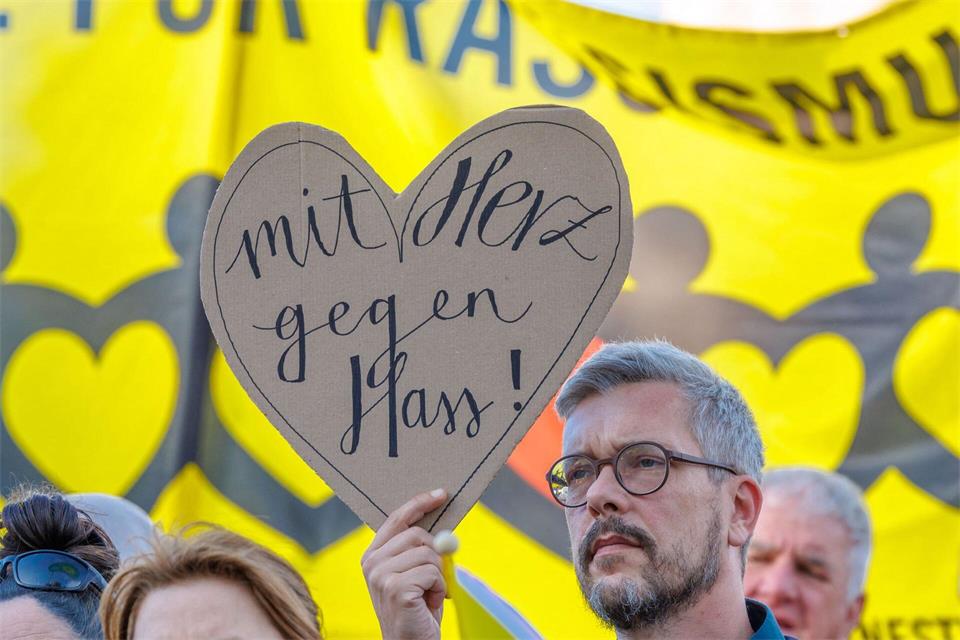 FÜR RAS
SISMU
mit Herz
gegen
Hass!